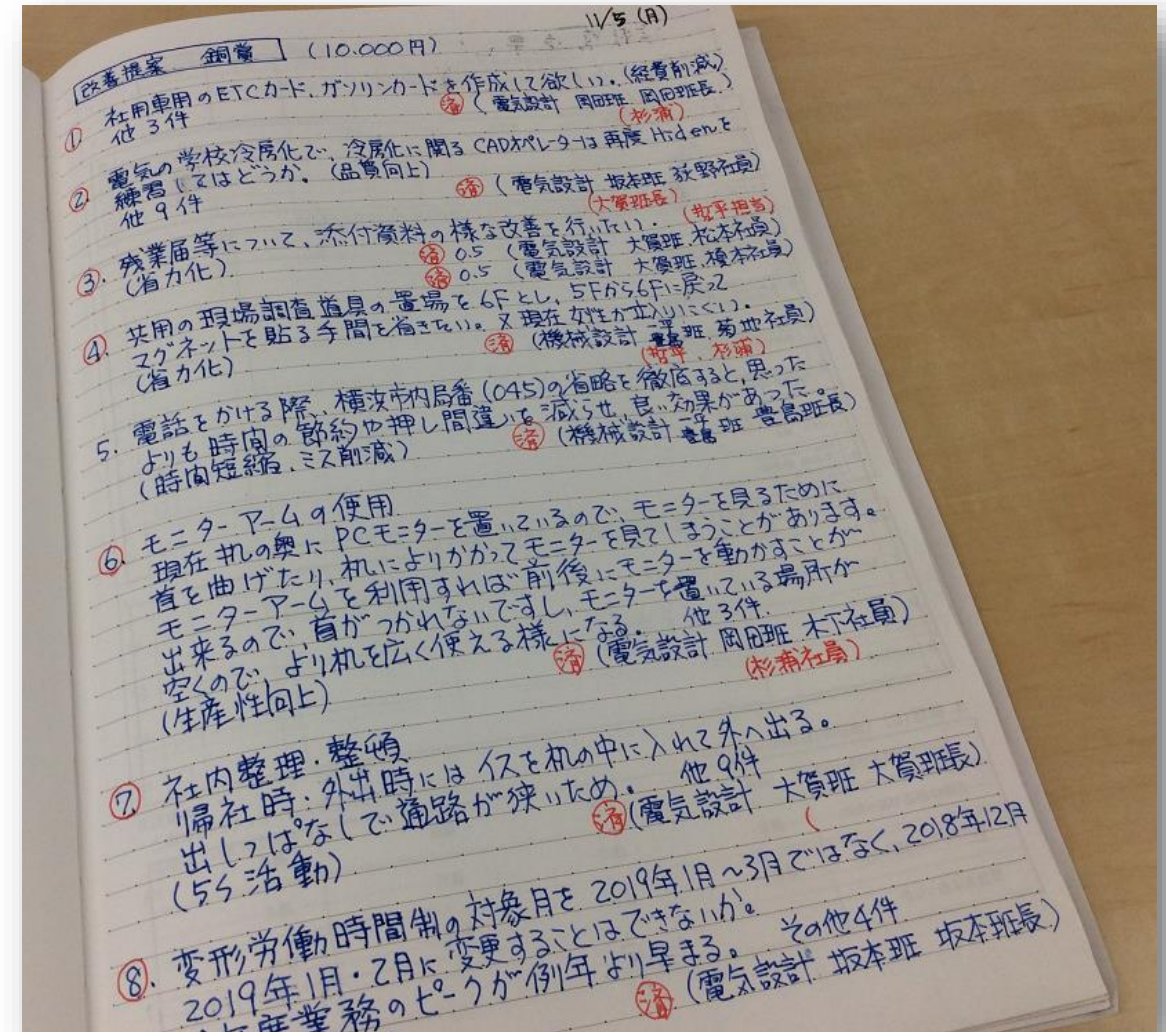 11/5 (月)
改善提案 銅賞 (10.000円)
① 社用車用のETCカード、ガソリンカードを作成して欲しい。(経費削減)
他3件 済 (電気設計 岡田班 岡田班長)
(杉浦)
② 電気の学校冷房化で、冷房化に関るCADオペレーターは再度Hidenを
練習してはどうか。(品質向上)
他9件 済 (電気設計 坂本班 荻野社員)
(大賀班長) (哲平担当)
③. 残業届等について、添付資料の様な改善を行いたい。
(省力化) 済 0.5 (電気設計 大賀班 松本社員)
済 0.5 (電気設計 大賀班 榎本社員)
④. 共用の現場調査道具の置場を6Fとし、5Fから6Fに戻って
マグネットを貼る手間を省きたい。又現在女性が立入りにくい。
(省力化) 済 (機械設計 豊島班 菊地社員)
(哲平、杉浦)
5. 電話をかける際、横浜市内局番(045)の省略を徹底すると、思った
よりも時間の節約や押し間違いを減らせ、良い効果があった。
(時間短縮、ミス削減) 済 (機械設計 豊島班 豊島班長)
⑥. モニターアームの使用
現在机の奥にPCモニターを置いているので、モニターを見るために
首を曲げたり、机によりかかってモニターを見てしまうことがあります。
モニターアームを利用すれば前後にモニターを動かすことが
出来るので、首がつかれないですし、モニターを置いている場所が
空くので、より机を広く使える様になる。 他3件.
(生産性向上) 済 (電気設計 岡田班 木下社員)
(杉浦社員)
⑦. 社内整理・整頓
帰社時・外出時にはイスを机の中に入れて外へ出る。
出しっぱなしで通路が狭いため。 他9件
(5S活動) 済 (電気設計 大賀班 大賀班長)
(
⑧. 変形労働時間制の対象月を2019年1月~3月ではなく、2018年12月
2019年1月・2月に変更することはできないか。
業務のピークが例年より早まる。 その他4件
済 (電気設計 坂本班 坂本班長)